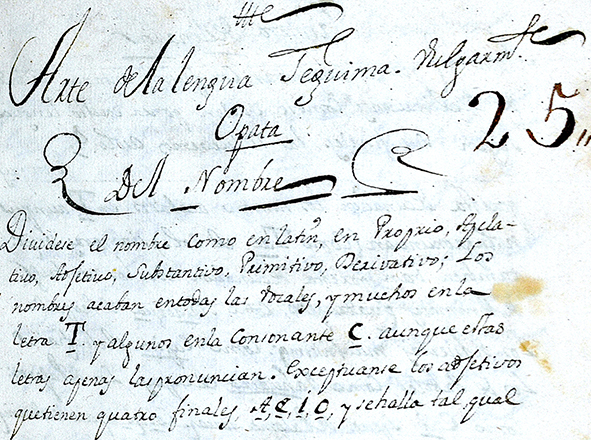 Arte de la lengua Teguima. Vulgarm.te
Opata
25
Del Nombre
Dividese el nombre como en latin, en Proprio, Apela-
tivo, Adjetivo, Substantivo, Primitivo, Derivativo; Los
nombres acaban entodas las vocales, y muchos en la
letra T y algunos en la Consonante C. aunque estas
letras apenas las pronuncian. Exceptuanse los adjetivos
quetienen quatro finales, A, E, I, O, y sehalla tal, qual